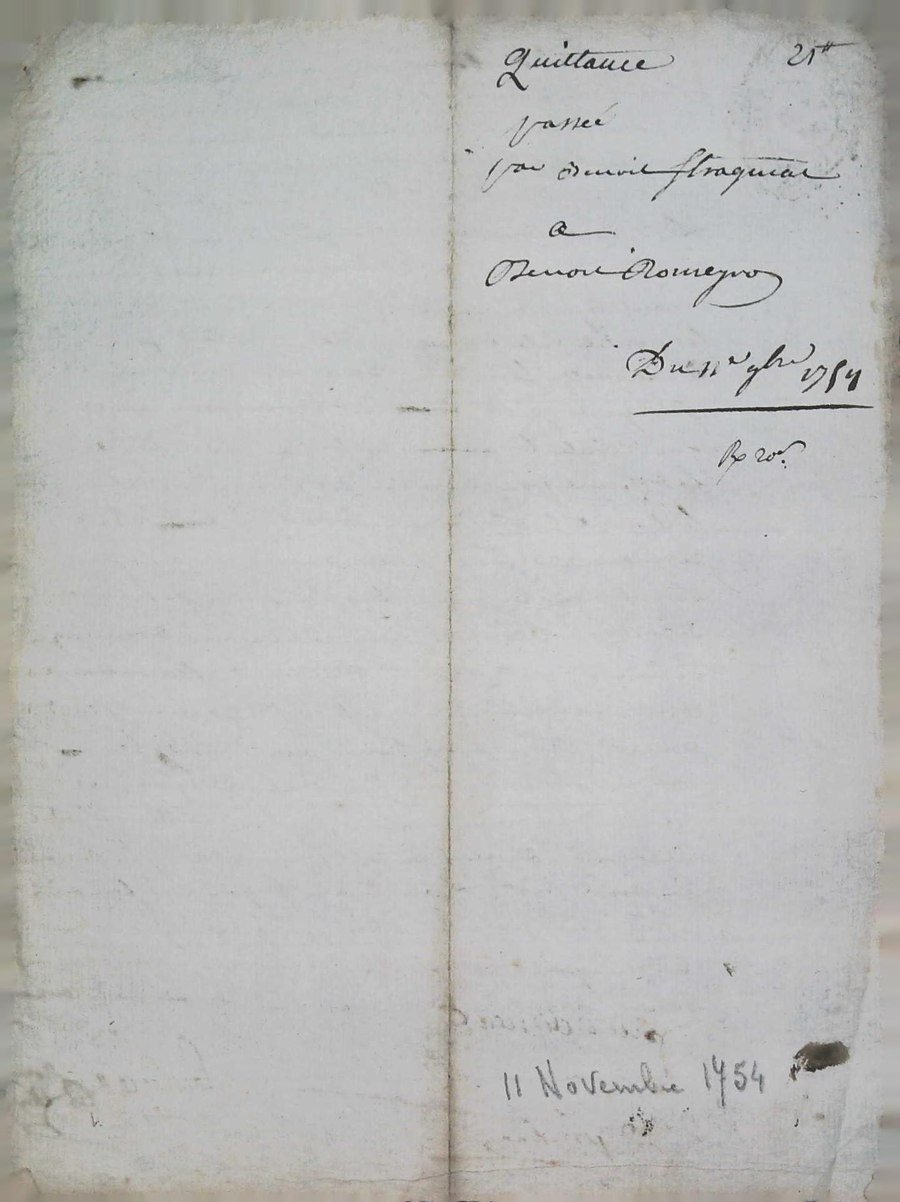 Quittance 21#
passée
par Benoit Straquiat
a
Benoit Romeyro
Du 11e 9bre 1754
Rx 20s.
11 Novembre 1754